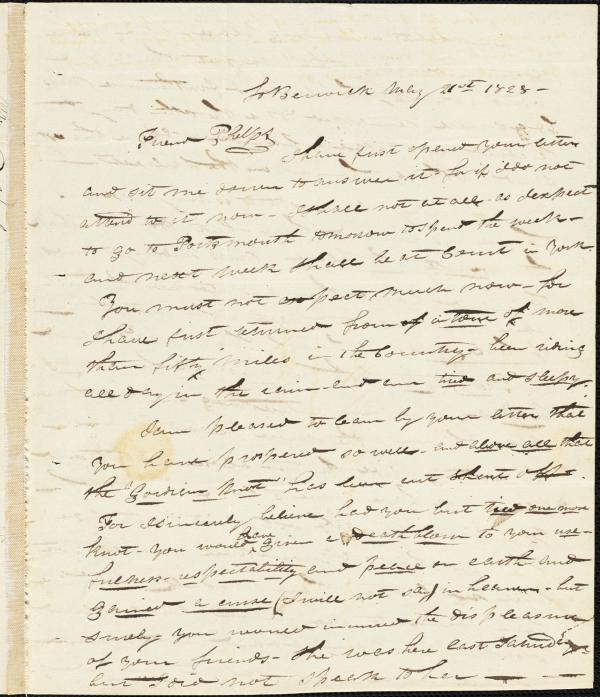 So Berwick May 21st 1828 -
Friend Phelps
I have just opend your letter
and sit me down to answer it for if I do not
attend to it now - I shall not at all - as I expect
to go to Portsmouth tomorow to spend the week -
and next week shall be at Court in York.
You must not expect much now - for
I have just returned from a tour of more
than fifty miles in the Country - been riding
all day in the rain and am tired and sleepy.
I am pleased to learn by your letter that
you have prospered so well - and above all that
the "Gordien Knot" has been cut short off.
For I sincerely believe had you but tied one more
knot - you would have given a death blow to your use-
fulness - respectability and peace on earth and
gained a curse (I will not say) in heaven - but
surely you would incurred the displeasure
of your friends - She was here last Saturday
but I did not speak to her - -